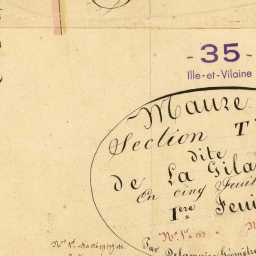 - 35 -
Ille-et-Vilaine
Maure
Section
dite
de La Gila
En cinq Feuil
1ere Feui
Par